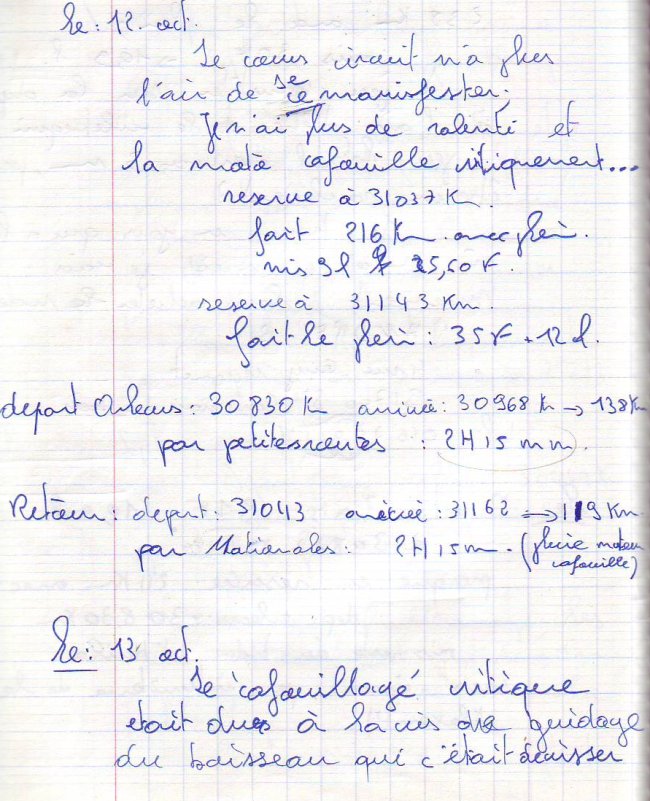 Le: 12. oct.
Le cours circuit n'a plus
l'air de se ce manisfester.
Je n'ai plus de ralenti et
la moto cafouille critiquement...
reserve à 31037 Km.
fait 216 Km. avec plein.
mis 9l 25,60 F.
reserve à 31143 Km.
fait le plein: 35F. 12 l.
depart Orleans: 30830 K arrivée: 30968 K → 138 Km
par petites routes : 2H 15 mm.
Retour: depart: 31043 arrivée: 31162 ⇒ 119 Km
par Nationales: 2H 15m. (pluie moteur
cafouille)
Le: 13 oct.
Le "cafouillage" critique
etait due à la vis de guidage
du boisseau qui c'était devisser